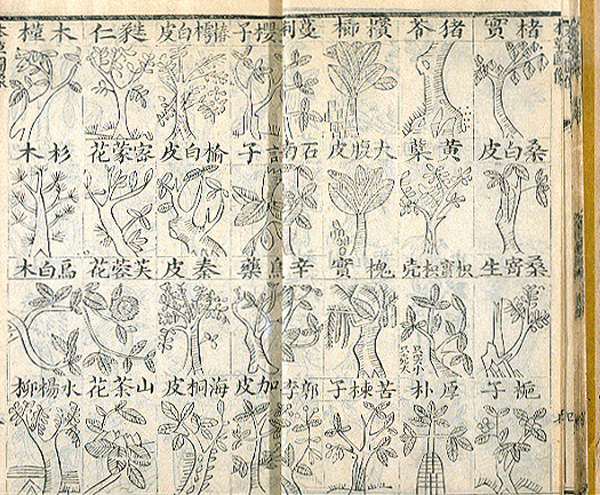 楮實 猪苓 檳榔 蔓 櫻子 椿樗白皮 蕤仁 木槿
桑白皮 黃蘗 大腹皮 石南 訶子 榆白皮 密蒙花 杉木
桑寄生 枳實枳壳 槐實 辛 烏藥 秦皮 芙蓉花 烏臼木
梔子 厚朴 苦楝子 李 加皮 海桐皮 山茶花 水楊柳